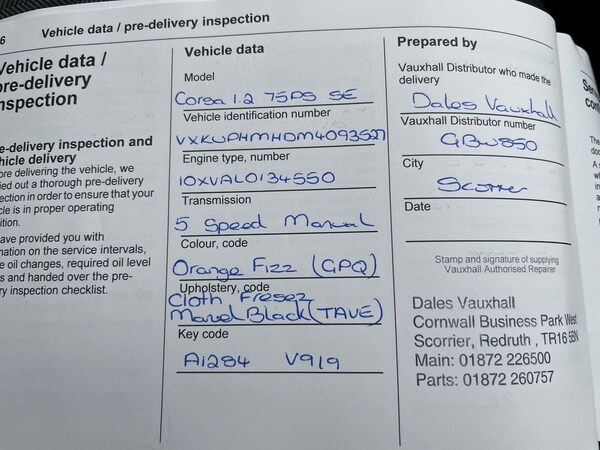 6 Vehicle data / pre-delivery inspection
Vehicle data /
pre-delivery
inspection
e-delivery inspection and
hicle delivery
ore delivering the vehicle, we
ied out a thorough pre-delivery
ection in order to ensure that your
cle is in proper operating
ition.
ave provided you with
mation on the service intervals,
e oil changes, required oil level
s and handed over the pre-
ry inspection checklist.
Vehicle data
Model
Corsa 1.2 75PS SE
Vehicle identification number
VXKUPHMHDM4093527
Engine type, number
10XVAL0134550
Transmission
5 Speed Manual
Colour, code
Orange Fizz (GPQ)
Upholstery, code
Cloth
Black (TAVE)
Key code
A1284 V919
Prepared by
Vauxhall Distributor who made the
delivery
Dales Vauxhall
Vauxhall Distributor number
GBW850
City
Scorrier
Date
Stamp and signature of supplying
Vauxhall Authorised Repairer
Dales Vauxhall
Cornwall Business Park West
Scorrier, Redruth , TR16 5BN
Main: 01872 226500
Parts: 01872 260757